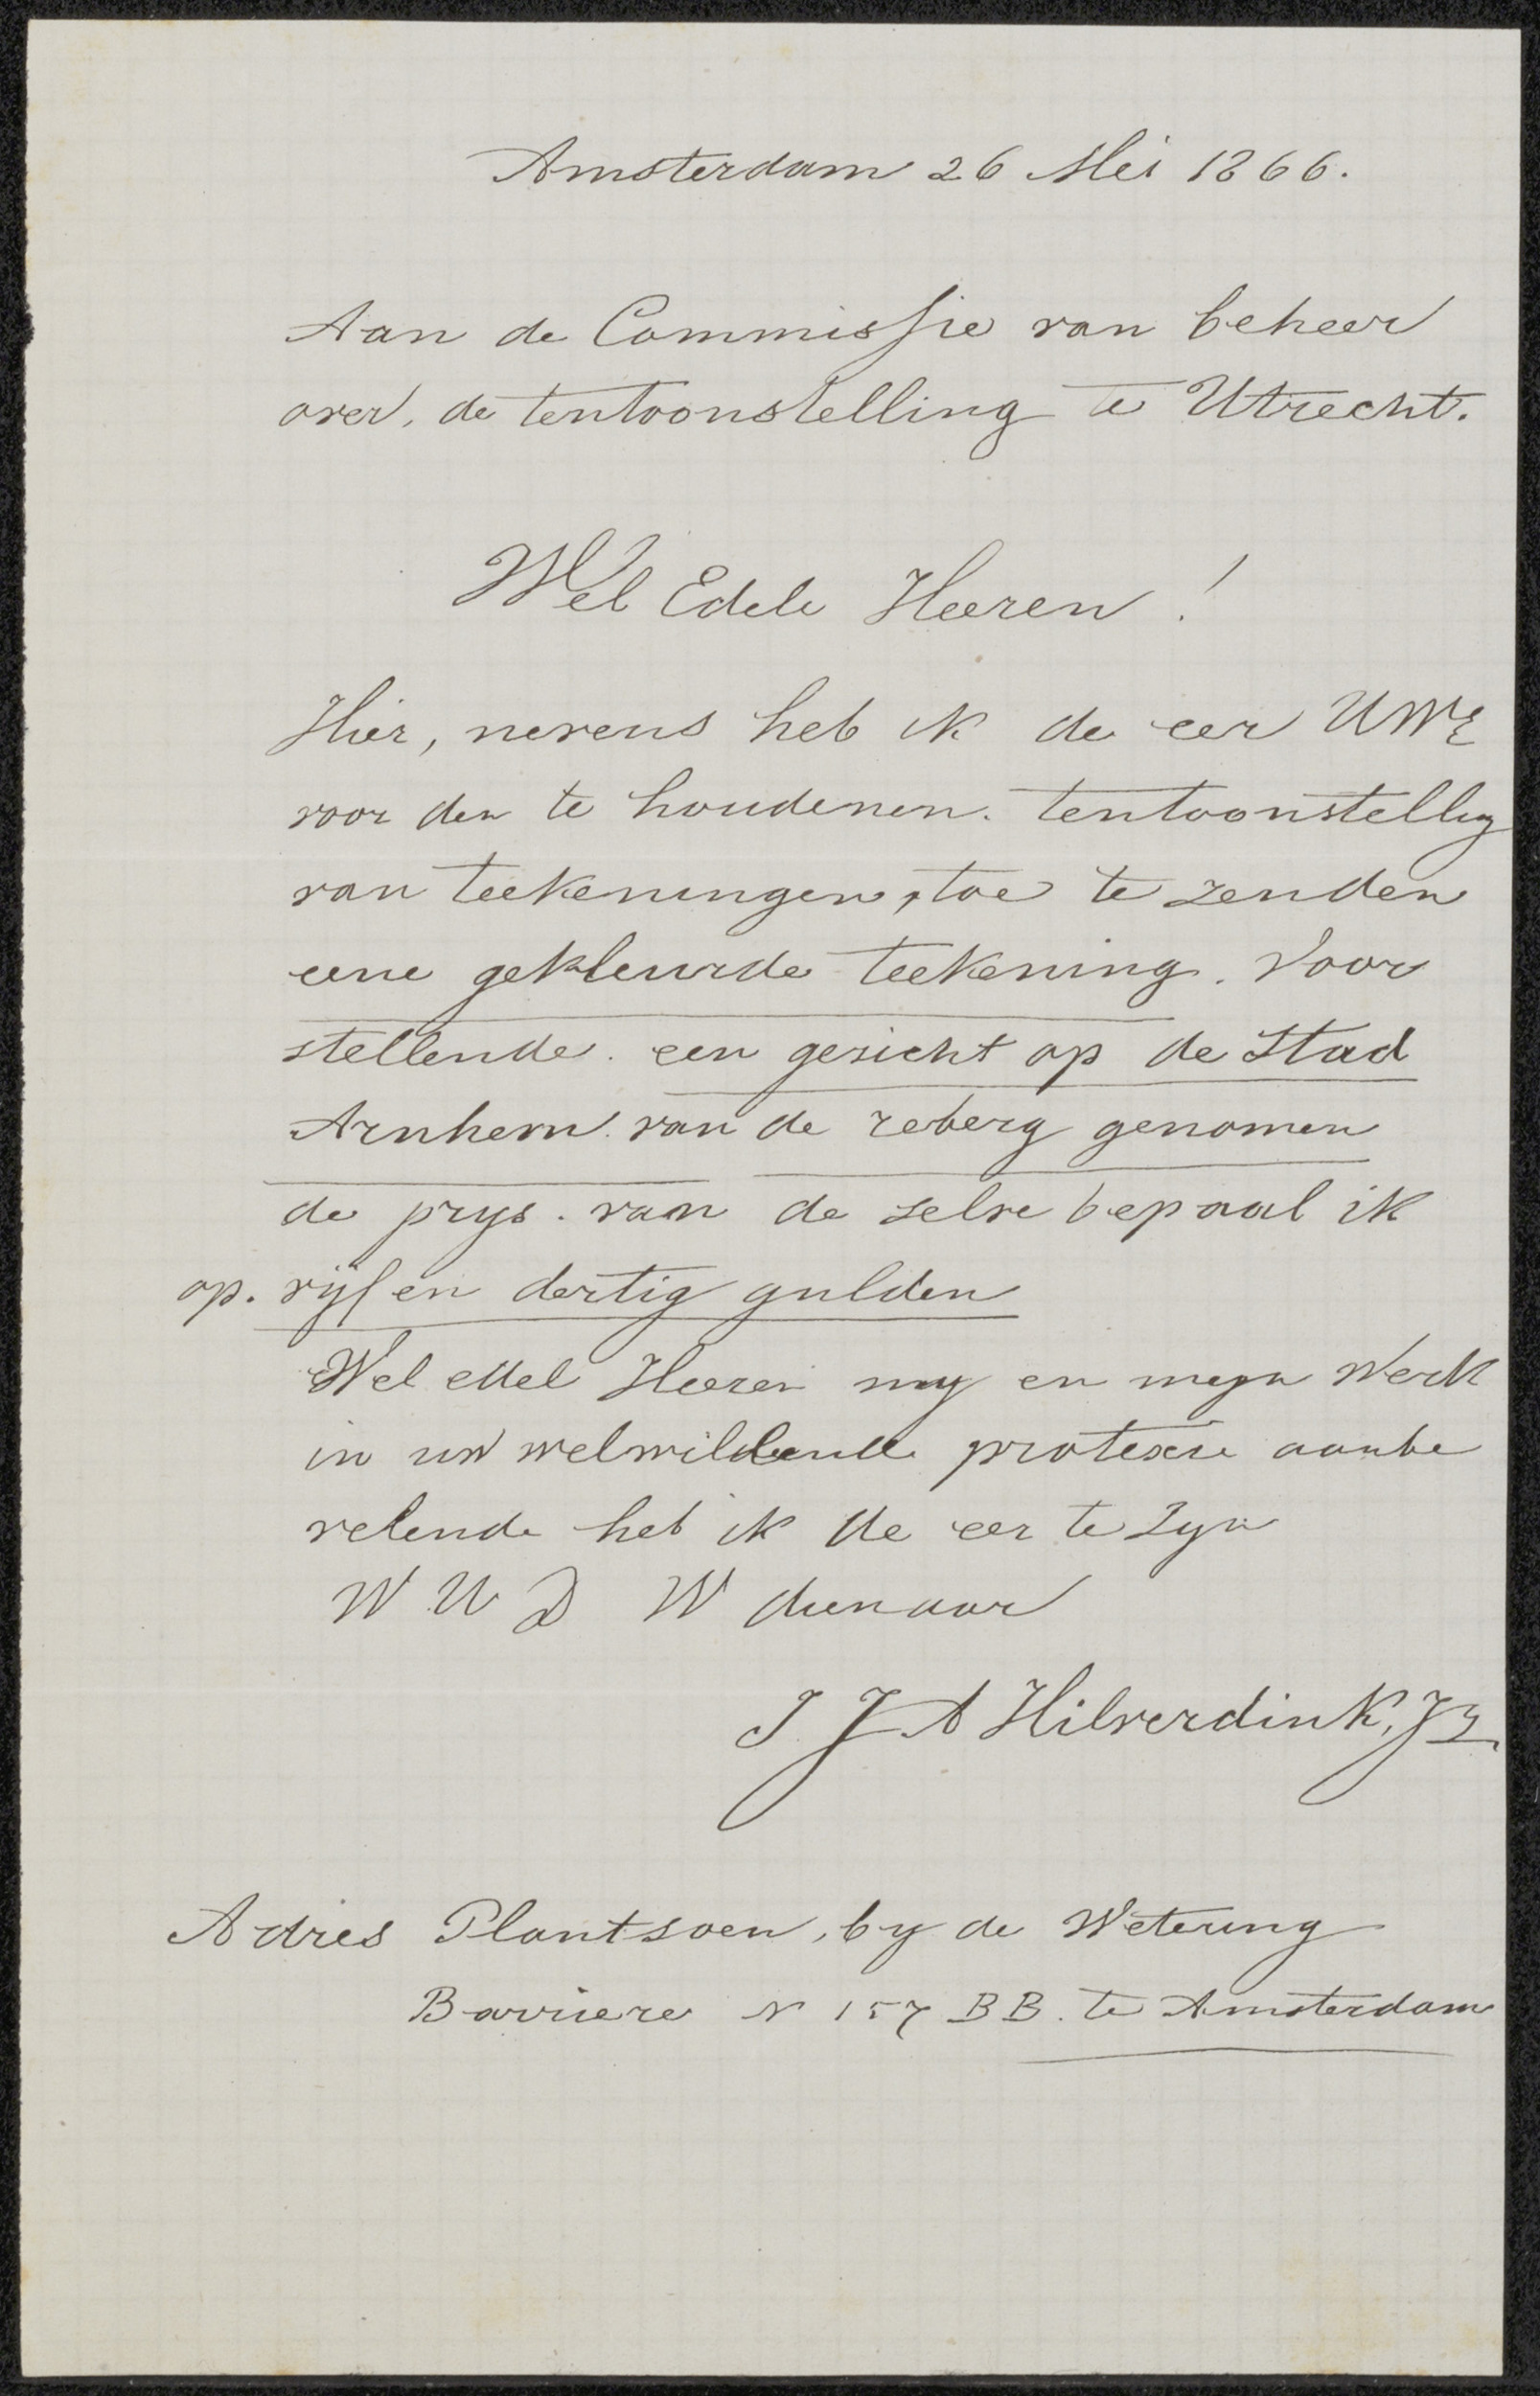 Amsterdam 26 Mei 1866.
Aan de Commissie van beheer
over, de tentoonstelling te Utrecht.
Wel Edele Heeren !
Hier, nevens heb ik de eer UWE
voor den te houdenen. tentoonstelling
van teekeningen, toe te zenden
eene gekleurde teekening. Voor
stellende. een gezicht op de Stad
Arnhem. van de reberg genomen
de prys. van de zelve bepaal ik
op. vijf en dertig gulden
Wel edel Heeren my en myn Werk
in uw welwillende protexie aanbe
velende heb ik de eer te Zyn
W U D W dienaar
J J A Hilverdink, Jz.
Adres Plantsoen, by de Wetering
Barriere N 157 BB. te Amsterdam